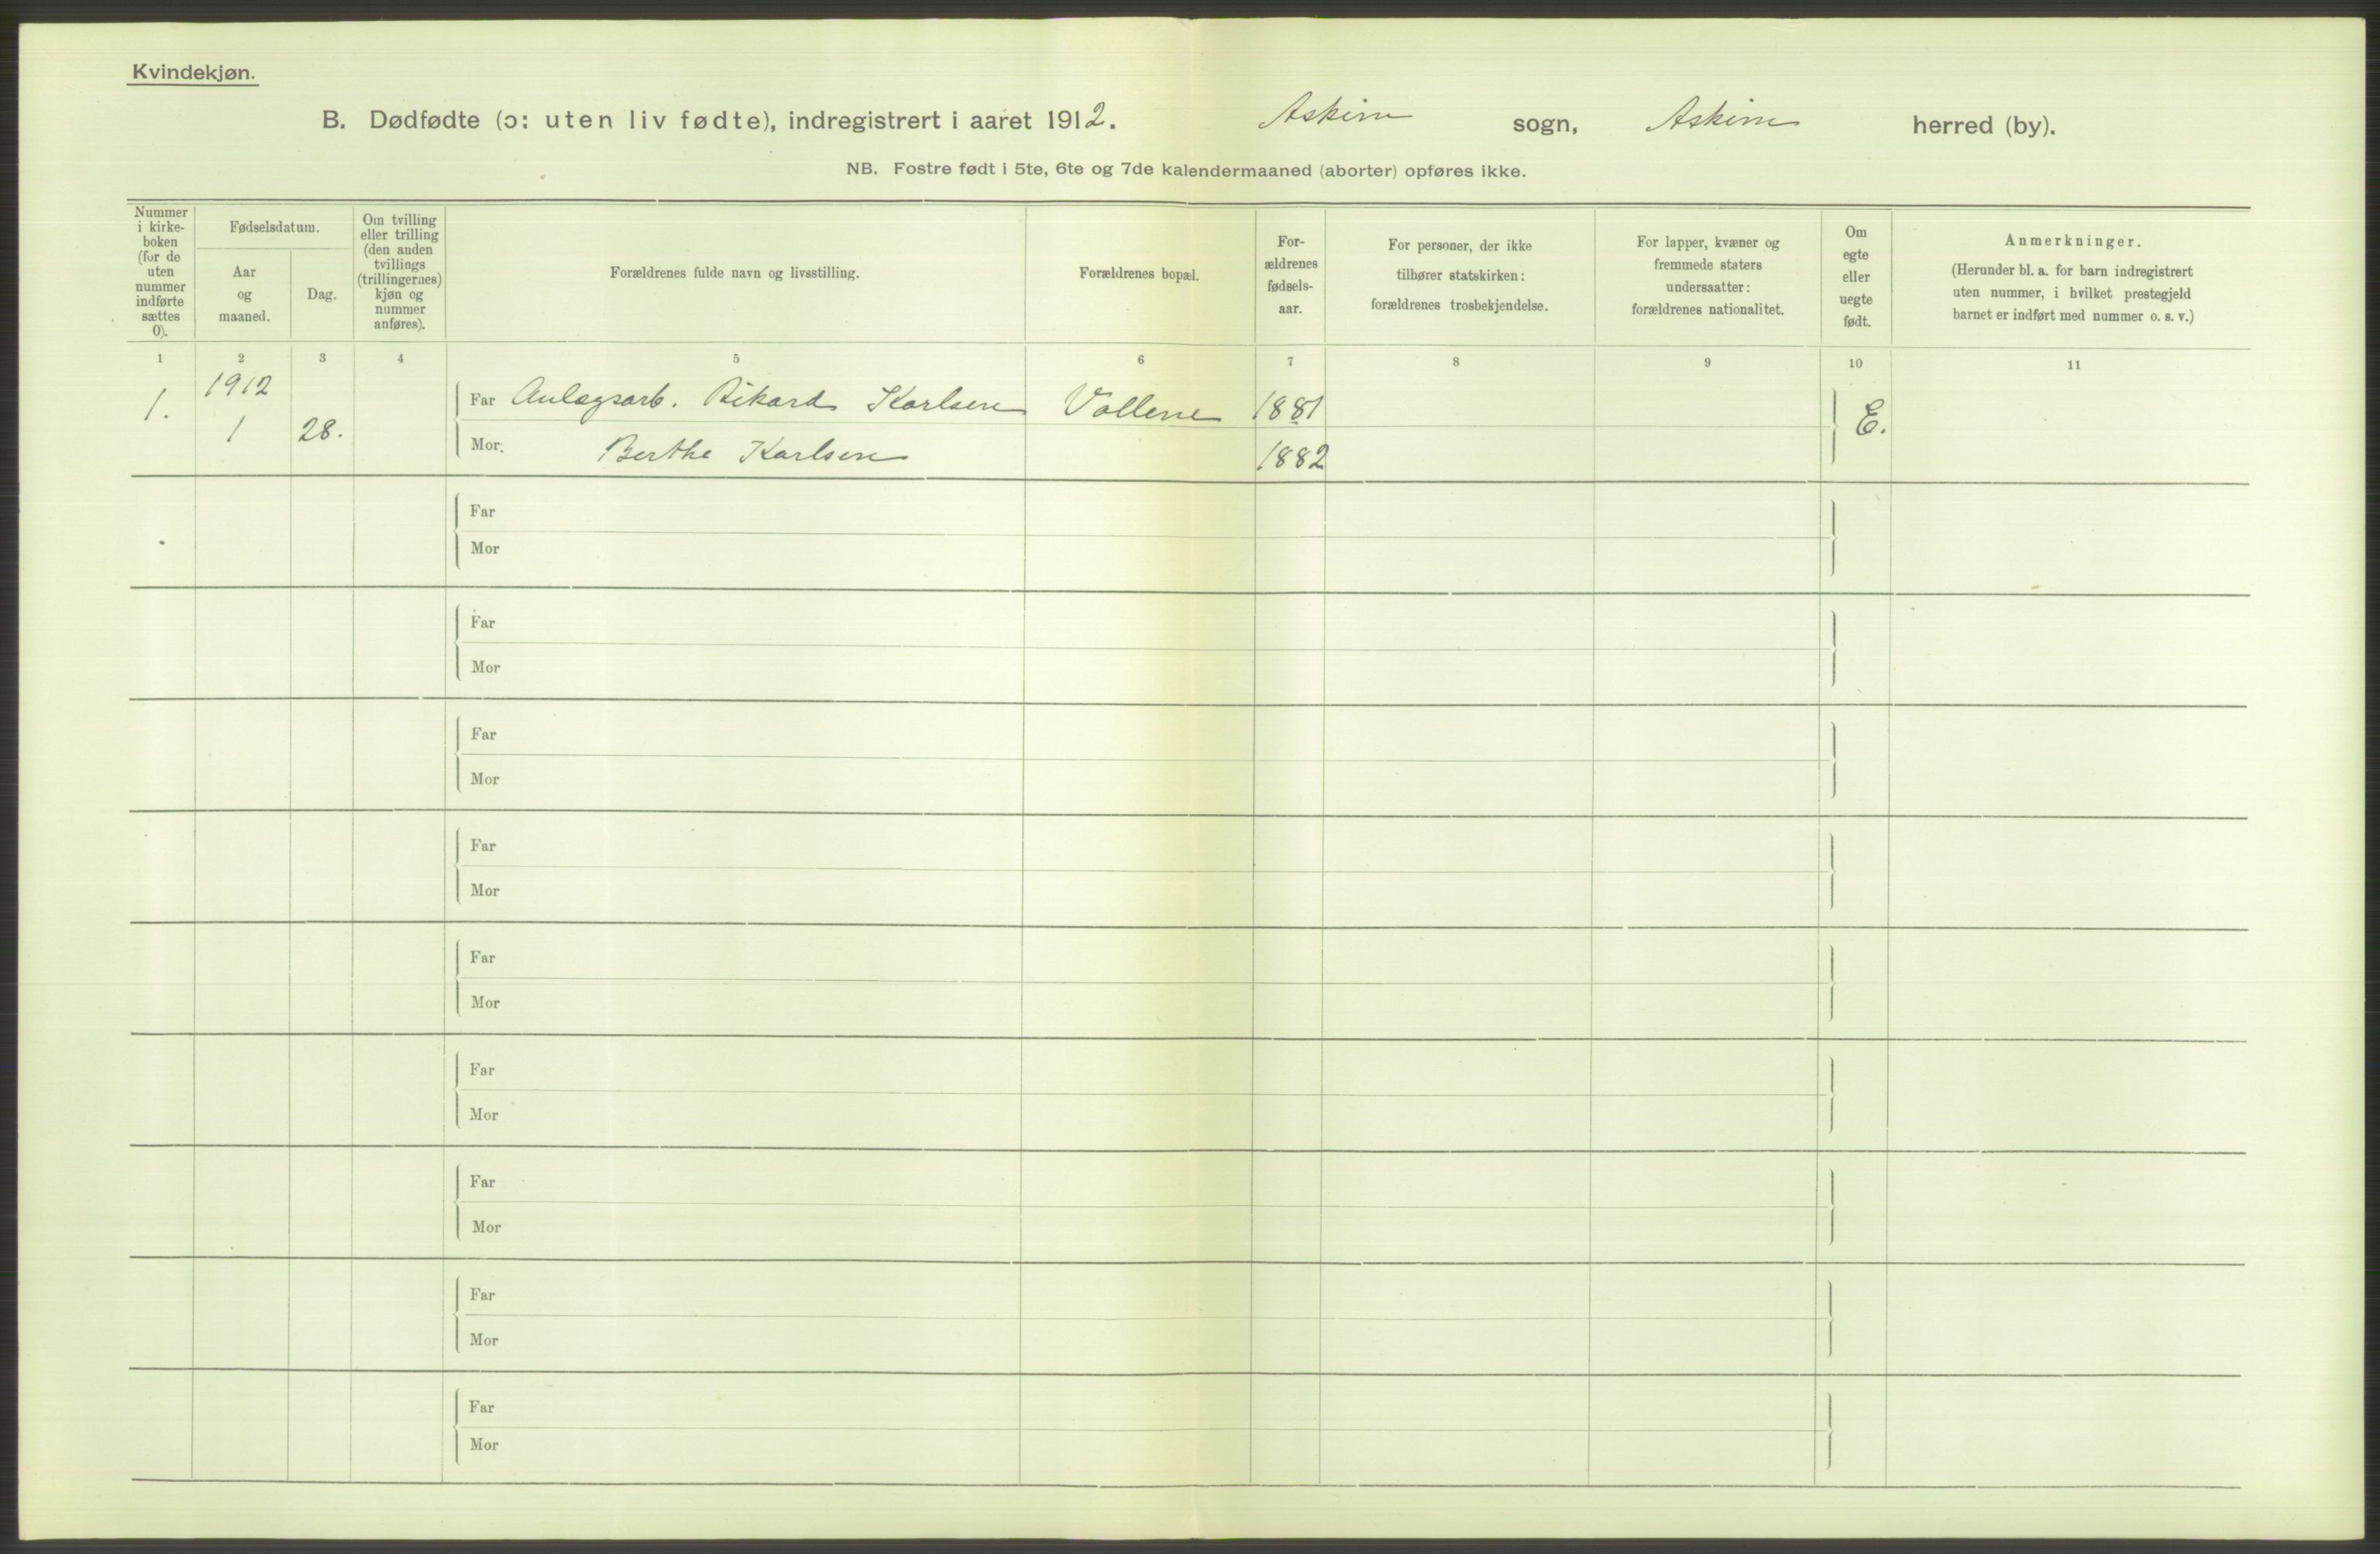 Kvindekjøn.
B. Dødfødte (ɔ: uten liv fødte), indregistrert i aaret 1912. Askim sogn, Askim herred (by).
NB. Fostre født i 5te, 6te og 7de kalendermaaned (aborter) opføres ikke.
Nummer
i kirke-
boken
(for de
uten
nummer
indførte
sættes
0).
Fødselsdatum.
Aar
og
maaned.
Dag.
Om tvilling
eller trilling
(den anden
tvillings
(trillingernes)
kjøn og
nummer
anføres).
Forældrenes fulde navn og livsstilling.
Forældrenes bopæl.
For-
ældrenes
fødsels-
aar.
For personer, der ikke
tilhører statskirken:
forældrenes trosbekjendelse.
For lapper, kvæner og
fremmede staters
undersaatter:
forældrenes nationalitet.
Om
egte
eller
uegte
født.
Anmerkninger.
(Herunder bl. a. for barn indregistrert
uten nummer, i hvilket prestegjeld
barnet er indført med nummer o. s. v.)
1 2 3 4 5 6 7 8 9 10 11
1912
1. Far Anlægsarb. Rikard Karlsen Vollene 1881 E.
1 28. Mor. Berthe Karlsen 1882
Far
Mor
Far
Mor
Far
Mor
Far
Mor
Far
Mor
Far
Mor
Far
Mor
Far
Mor
Far
Mor